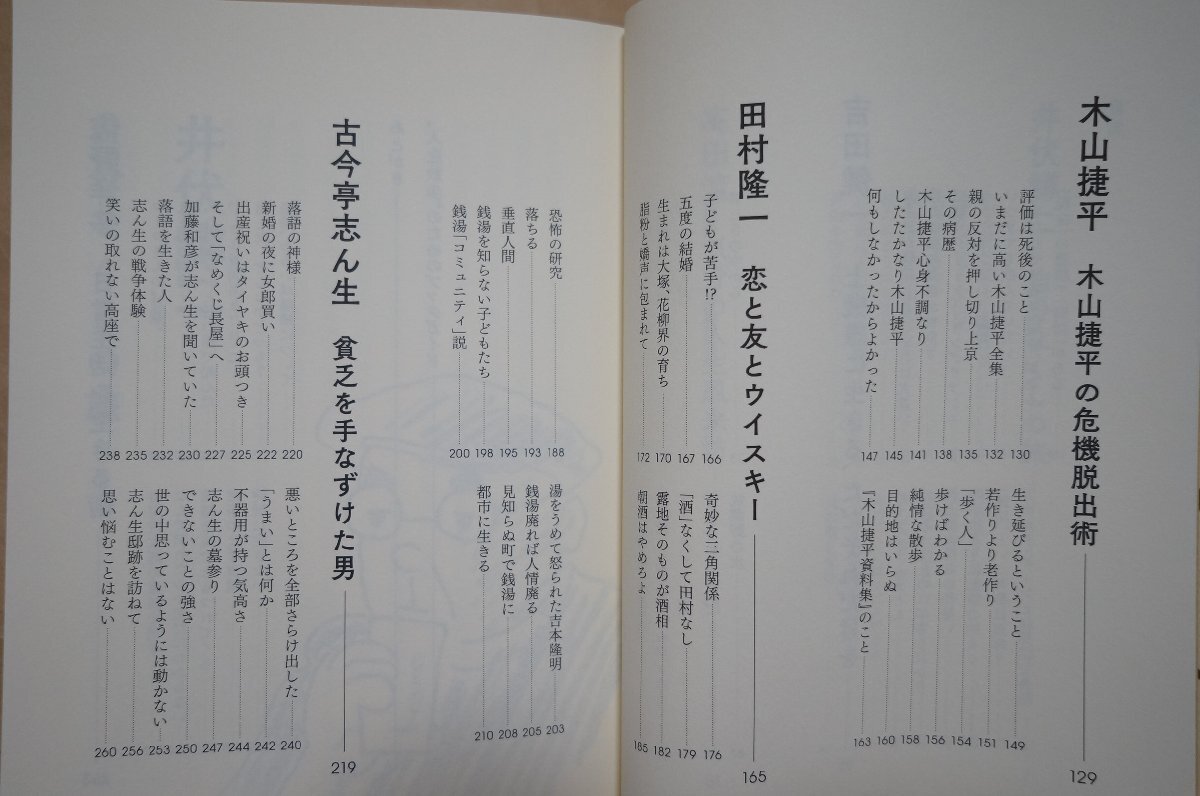 木山捷平　木山捷平の危機脱出術 129
評価は死後のこと 130
いまだに高い木山捷平全集 132
親の反対を押し切り上京 135
その病歴 138
木山捷平心身不調なり 141
したたかなり木山捷平 145
何もしなかったからよかった 147
生き延びるということ 149
若作りより老作り 151
「歩く人」 154
歩けばわかる 156
純情な散歩 158
目的地はいらぬ 160
『木山捷平資料集』のこと 163
田村隆一　恋と友とウイスキー 165
子どもが苦手!? 166
五度の結婚 167
生まれは大塚、花柳界の育ち 170
脂粉と嬌声に包まれて 172
奇妙な三角関係 176
「酒」なくして田村なし 179
露地そのものが酒相 182
朝酒はやめろよ 185
恐怖の研究 188
落ちる 193
垂直人間 195
銭湯を知らない子どもたち 198
銭湯「コミュニティ」説 200
湯をうめて怒られた吉本隆明 203
銭湯廃れば人情廃る 205
見知らぬ町で銭湯に 208
都市に生きる 210
古今亭志ん生　貧乏を手なずけた男 219
落語の神様 220
新婚の夜に女郎買い 222
出産祝いはタイヤキのお頭つき 225
そして「なめくじ長屋」へ 227
加藤和彦が志ん生を聞いていた 230
落語を生きた人 232
志ん生の戦争体験 235
笑いの取れない高座で 238
悪いところを全部さらけ出した 240
「うまい」とは何か 242
不器用が持つ気高さ 244
志ん生の墓参り 247
できないことの強さ 250
世の中思っているようには動かない 253
志ん生邸跡を訪ねて 256
思い悩むことはない 260